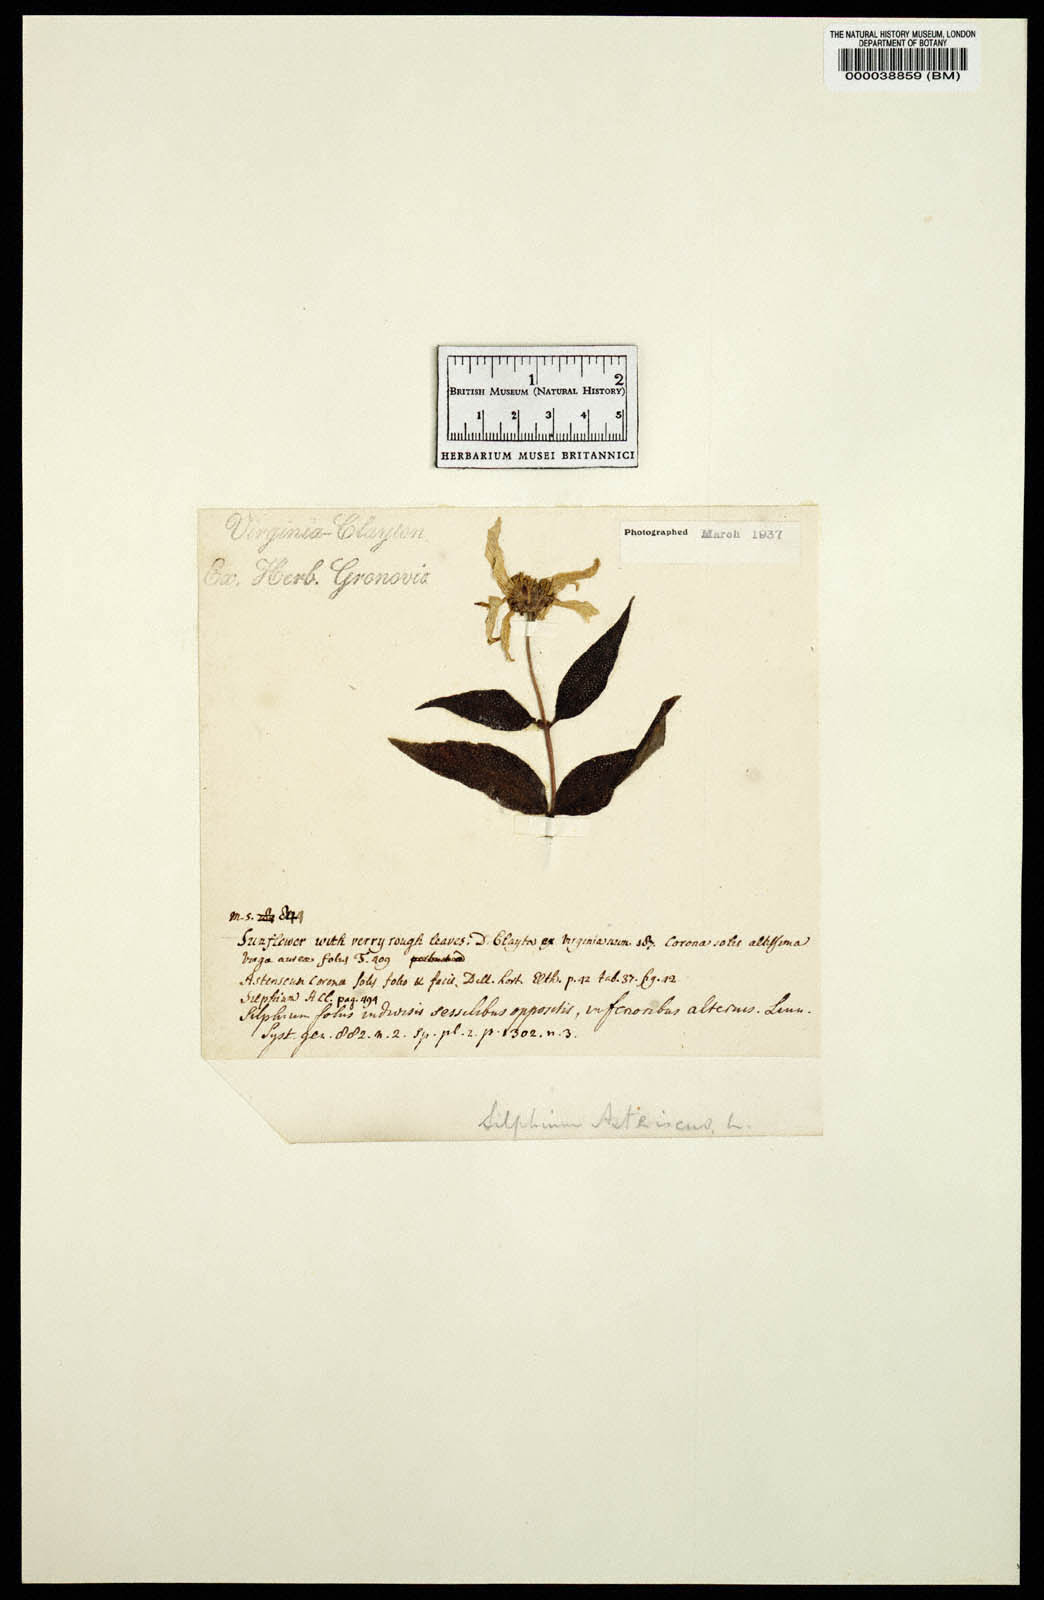 THE NATURAL HISTORY MUSEUM, LONDON
DEPARTMENT OF BOTANY
000038859 (BM)
1 2
BRITISH MUSEUM (NATURAL HISTORY)
1 2 3 4 5
HERBARIUM MUSEI BRITANNICI
Virginia-Clayton
Ex. Herb. Gronovio
Photographed March 1937
m.s.
Sunflower with verry rough leaves. D. Clayton ex Virginia num. 187. Corona solis altissima
Virgæ aureæ foliis T. 409
Asteriscum Corona solis folio & facie, Dill. hort. Elth. p. 42 tab. 37. fig. 42
Silphium H Cl. pag. 494
Silphium foliis indivisis sessilibus oppositis, inferioribus alternis. Linn.
Syst. gen. 882. n. 2. sp. pl. 2. p. 1302. n. 3.
Silphium Asteriscus, L.